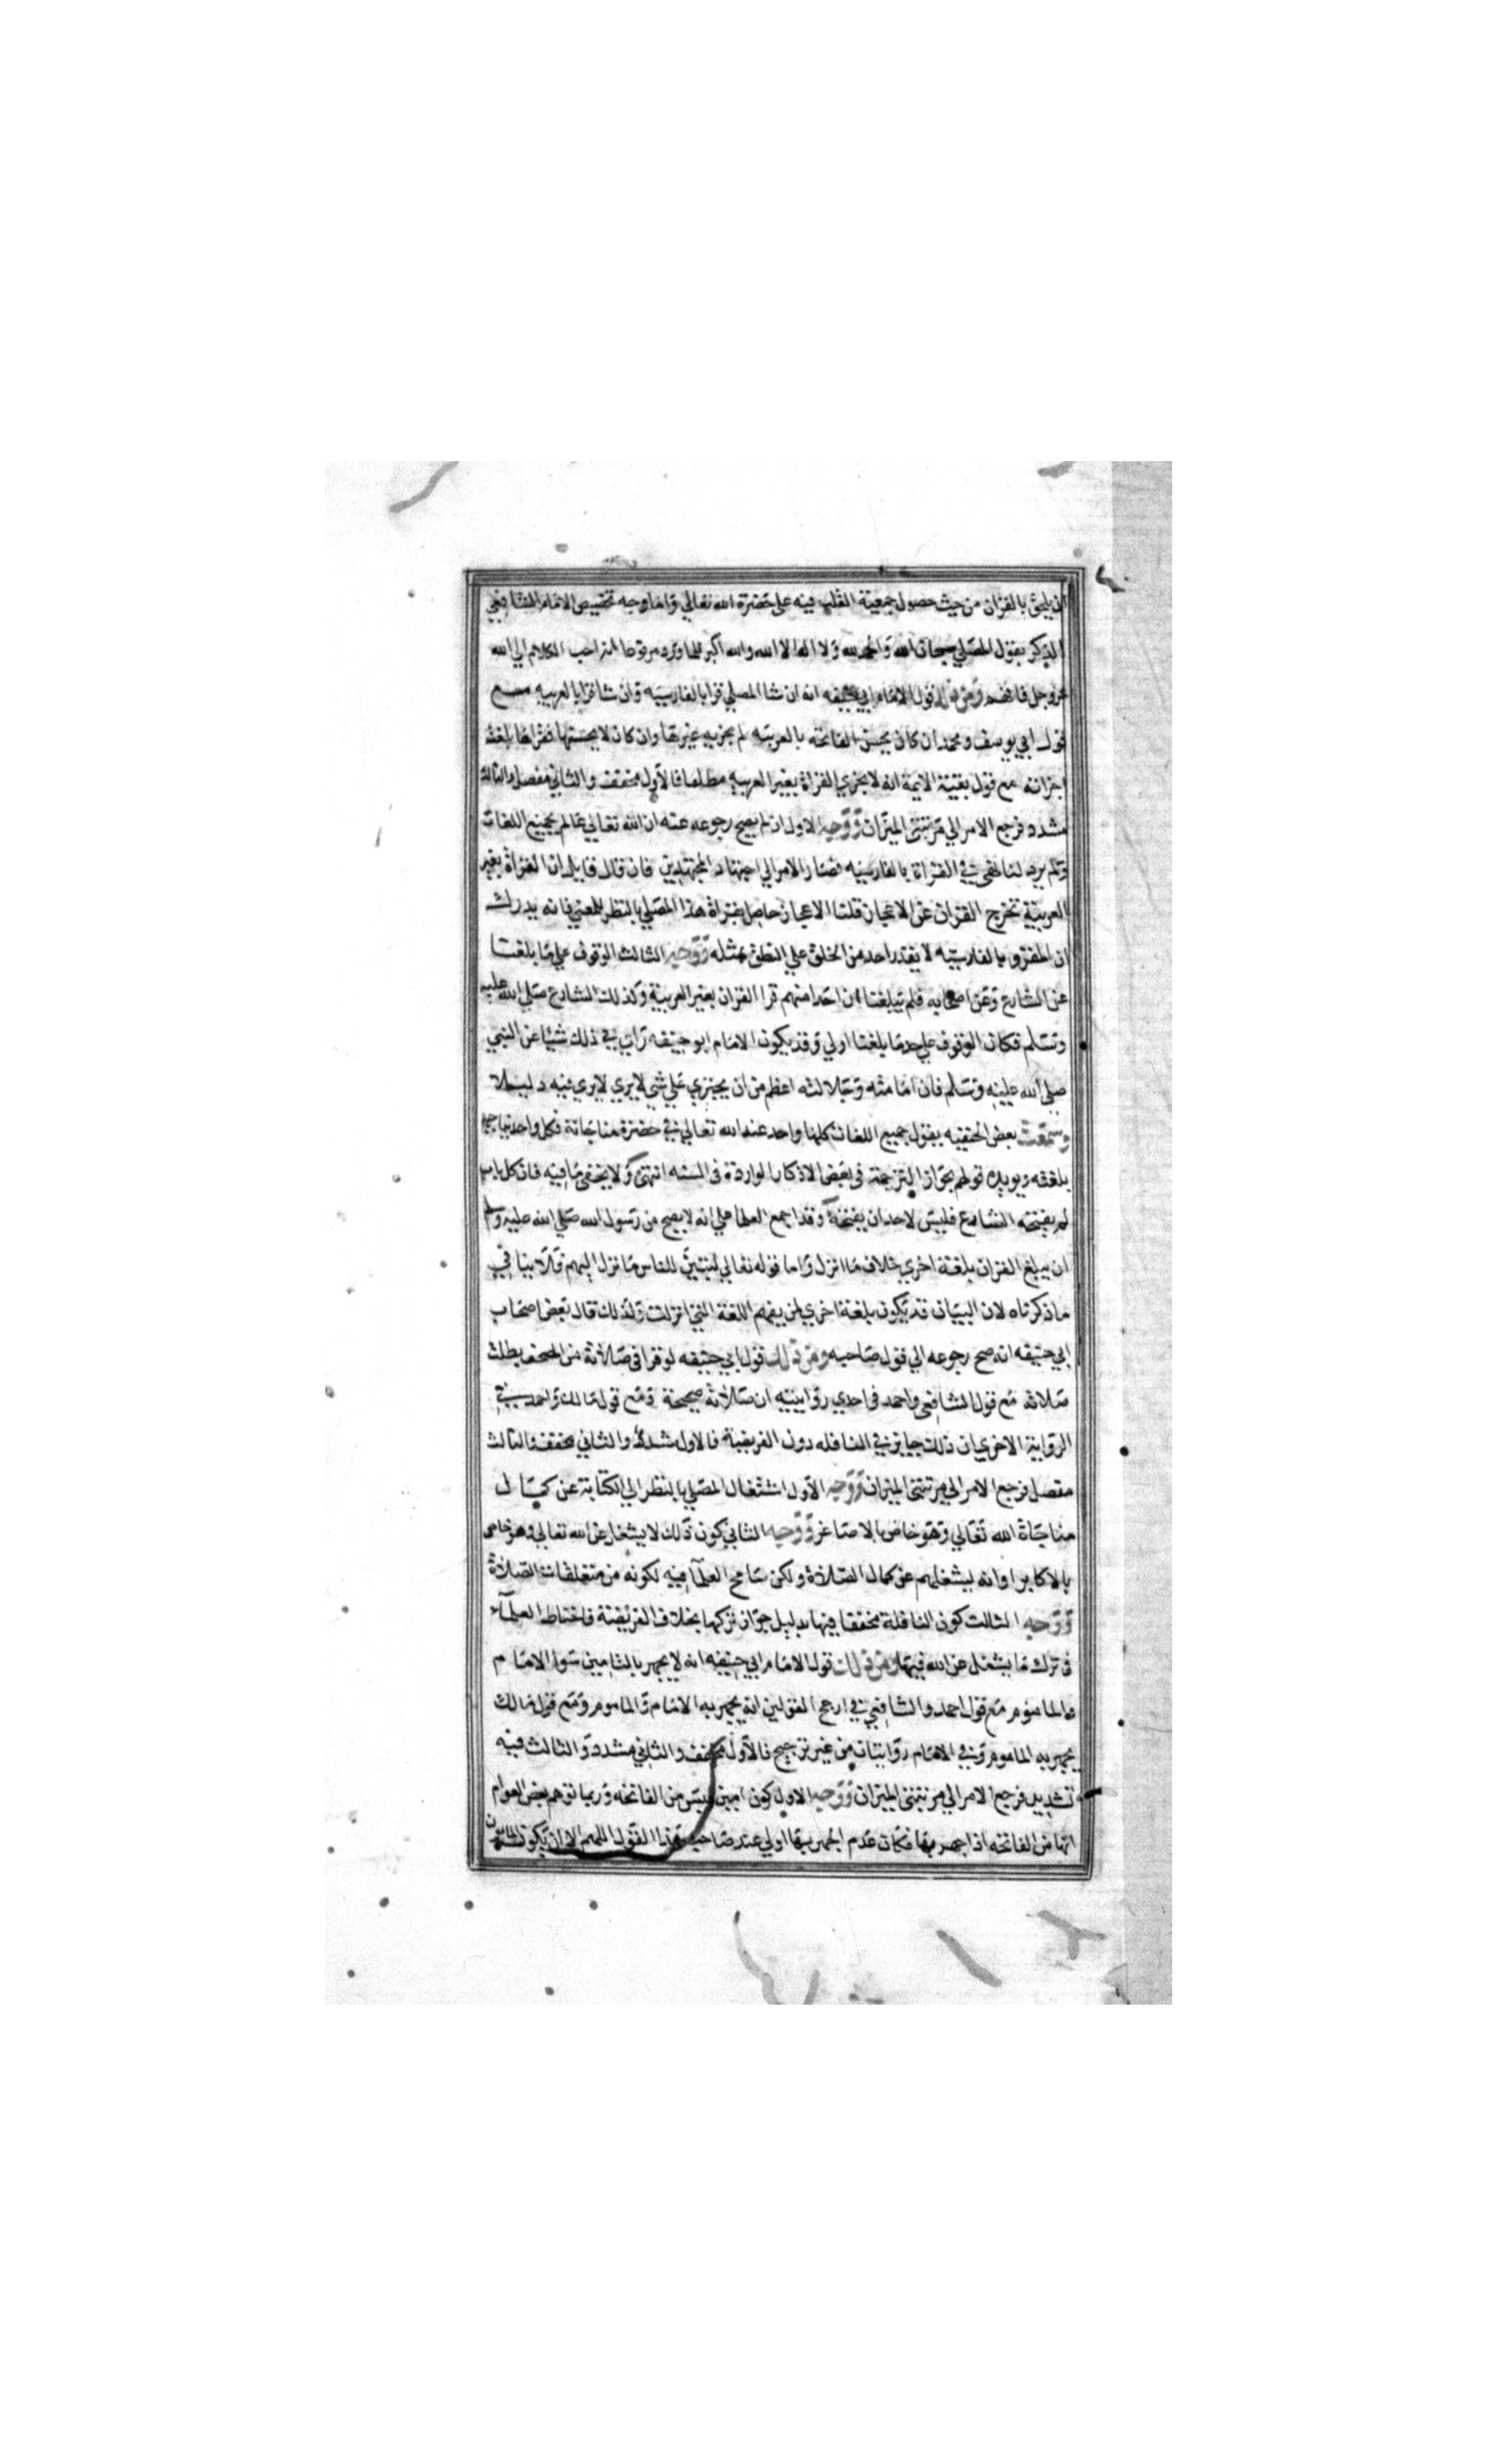 ان يلحق بالقران من حيث حصول جمعية القلب فيه على حضرة الله تعالي واما وجه تخصيص الامام الشافعي
الذكر بقول المصلي سبحان الله والحمد لله ولا اله الا الله والله اكبر فلما ورد مرفوعا انه احب الكلام الي الله
عز وجل فافهم ومن ذلك قول الامام ابي حنيفه انه ان شا المصلي قرا بالفارسيه وان شا قرا بالعربيه مع
قول ابي يوسف ومحمد ان كان يحسن الفاتحه بالعربيه لم يجزيه غيرها وان كان لا يحسنها فقراها بلغته
اجزاته مع قول بقية الايمة انه لا يجزي القراة بغير العربيه مطلقا فالاول مخفف والثاني مفصل والثالث
مشدد فرجع الامر الي مرتبتي الميزان ووجه الاول ان لم يصح رجوعه عنه ان الله تعالي عالم بجميع اللغات
ولم يرد لنا نهي في القراة بالفارسيه فصار الامر الي اجتهاد المجتهدين فان قال قايل ان القراة بغير
العربية تخرج القران عن الاعجاز قلنا الاعجاز حاصل بقراة هذا المصلي بالنظر للمعني فانه يدرك
ان المقرو بالفارسيه لا يقدر احد من الخلق علي النطق بمثله ووجه الثالث الوقوف علي ما بلغنا
عن الشارع وعن اصحابه فلم يبلغنا ان احدا منهم قرا القران بغير العربية وكذلك الشارع صلي الله عليه
وسلم فكان الوقوف علي حد ما بلغنا اولي وقد يكون الامام ابو حنيفه راي في ذلك شيا عن النبي
صلي الله عليه وسلم فان امامته وجلالته اعظم من ان يجتري علي شي لا يري لا يري فيه دليلا
وسمعت بعض الحنفيه يقول جميع اللغات كلها واحد عند الله تعالي في حضرة مناجاته فكل واحد يناجيه
بلغته ويويده قولهم بجواز الترجمة في بعض الاذكار الواردة في السنه انتهي ولا يخفي ما فيه فان كل باب
لم يفتحه الشارع فليس لاحد ان يفتحه وقد اجمع العلما علي انه لا يصح من رسول الله صلي الله عليه وسلم
ان يبلغ القران بلغة اخري خلاف ما انزل واما قوله تعالي لتبين للناس ما نزل اليهم فلا ينافي
ما ذكرناه لان البيان قد يكون بلغة اخري لمن يفهم اللغة التي انزلت ولذلك قال بعض اصحاب
ابي حنيفه انه صح رجوعه الي قول صاحبيه ومن ذلك قول ابي حنيفه لو قرا في صلاته من المصحف بطلت
صلاته مع قول الشافعي واحمد في احدي روايتيه ان صلاته صحيحة ومع قول مالك واحمد في
الرواية الاخري ان ذلك جايز في النافله دون الفريضة فالاول مشدد والثاني مخفف والثالث
مفصل فرجع الامر الي مرتبتي الميزان ووجه الاول اشتغال المصلي بالنظر الي الكتابة عن كمال
مناجاة الله تعالي وهو خاص بالاصاغر ووجه الثاني كون ذلك لا يشغل عن الله تعالي وهو خاص
بالاكابر او انه يشغلهم عن كمال الصلاة ولكن سامح العلمآ فيه لكونه من متعلقات الصلاة
ووجه الثالث كون النافلة مخففا فيها بدليل جواز تركها بخلاف الفريضة فاحتاط العلمآء
في ترك ما يشغل عن الله فيها ومن ذلك قول الامام ابي حنيفه انه لا يجهر بالتامين سوا الامام
والماموم مع قول احمد والشافعي في ارجح القولين انه يجهر به الامام والماموم ومع قول مالك
يجهر به الماموم وفي الامام روايتان من غير ترجيح فالاول مخفف والثاني مشدد والثالث فيه
تشديد فرجع الامر الي مرتبتي الميزان ووجه الاول كون امين ليس من الفاتحه وربما توهم بعض العوام
انها من الفاتحه اذا جهر بها فكان عدم الجهر بها اولي عند صاحب هذا القول اللهم الا ان يكون